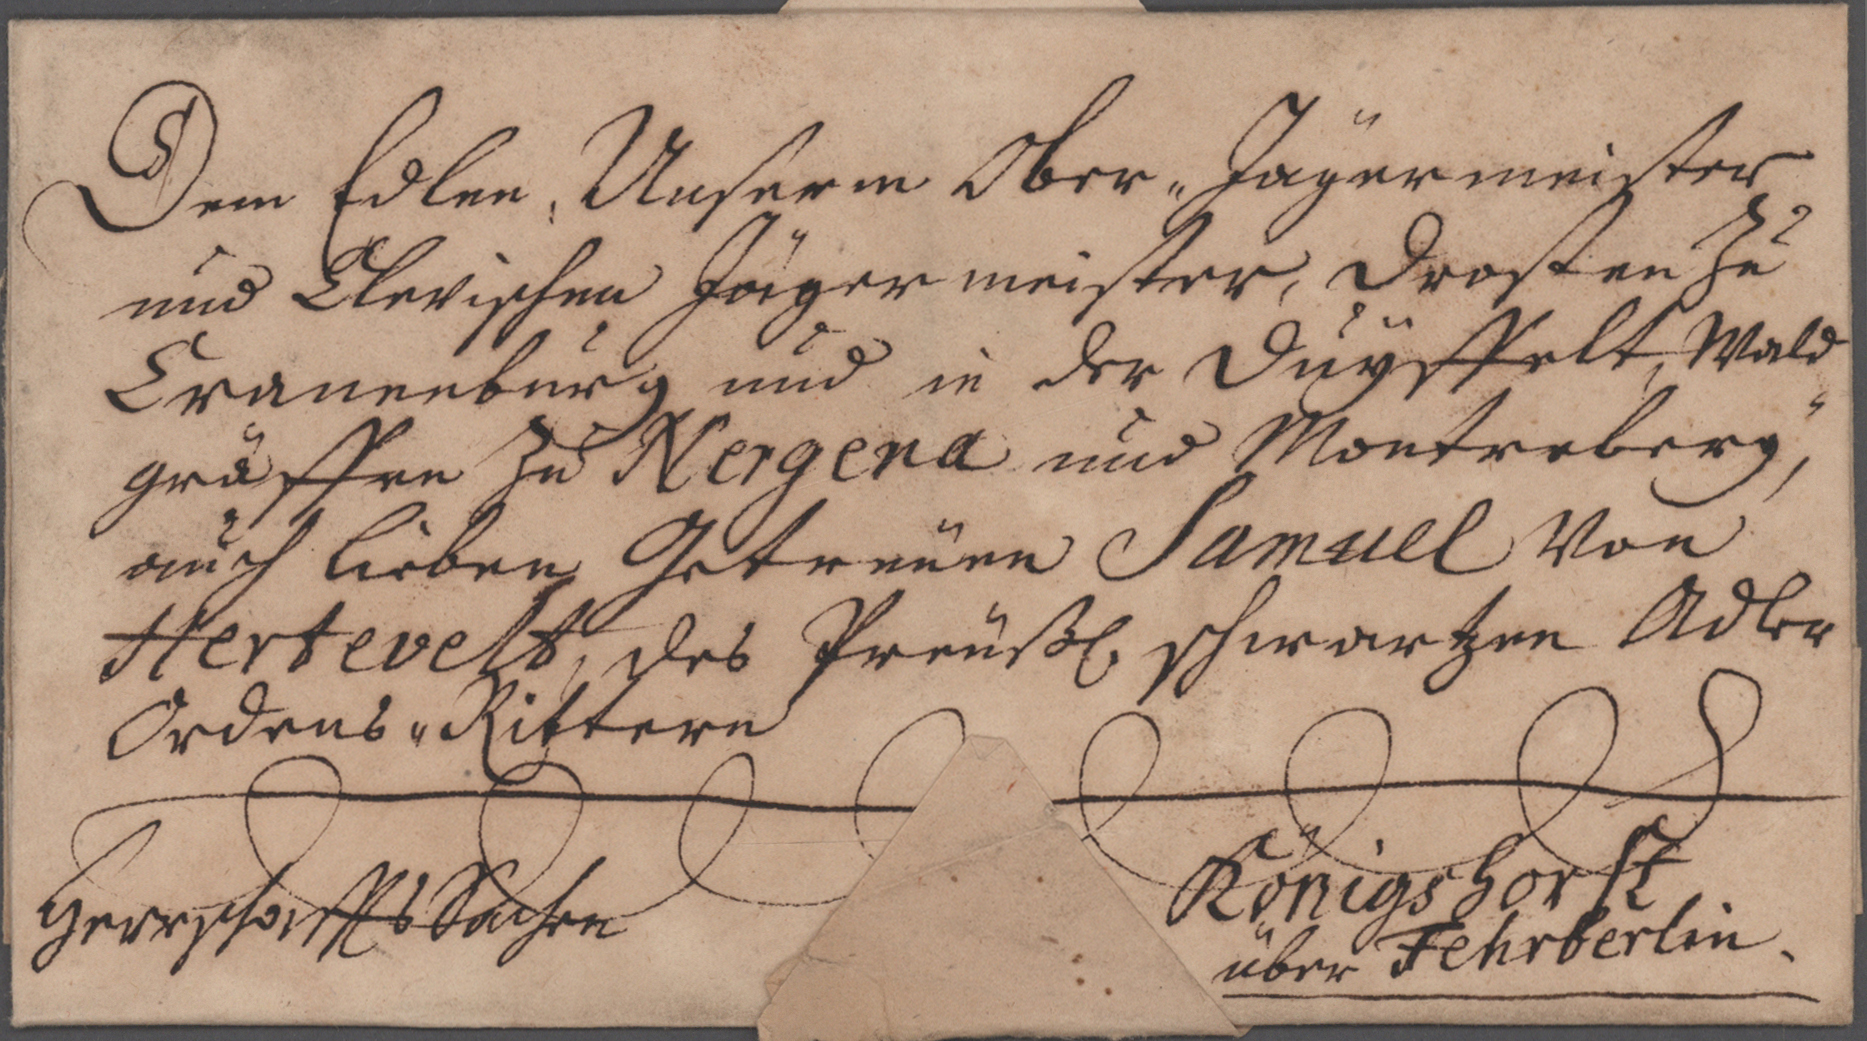 Dem Edlen, Unserm Ober-Jägermeister
und Clevischen Jägermeister, Drosten zu
Cranenburg und in der Duÿffelt, Wald
gräffen zu Nergena und Montreberg,
auch lieben Getreüen Samuel von
Hertevelt, des Preüßl. schwartzen Adler
Ordens-Rittern
Herrschaffts Sachen
Königshorst
über Fehrberlin.